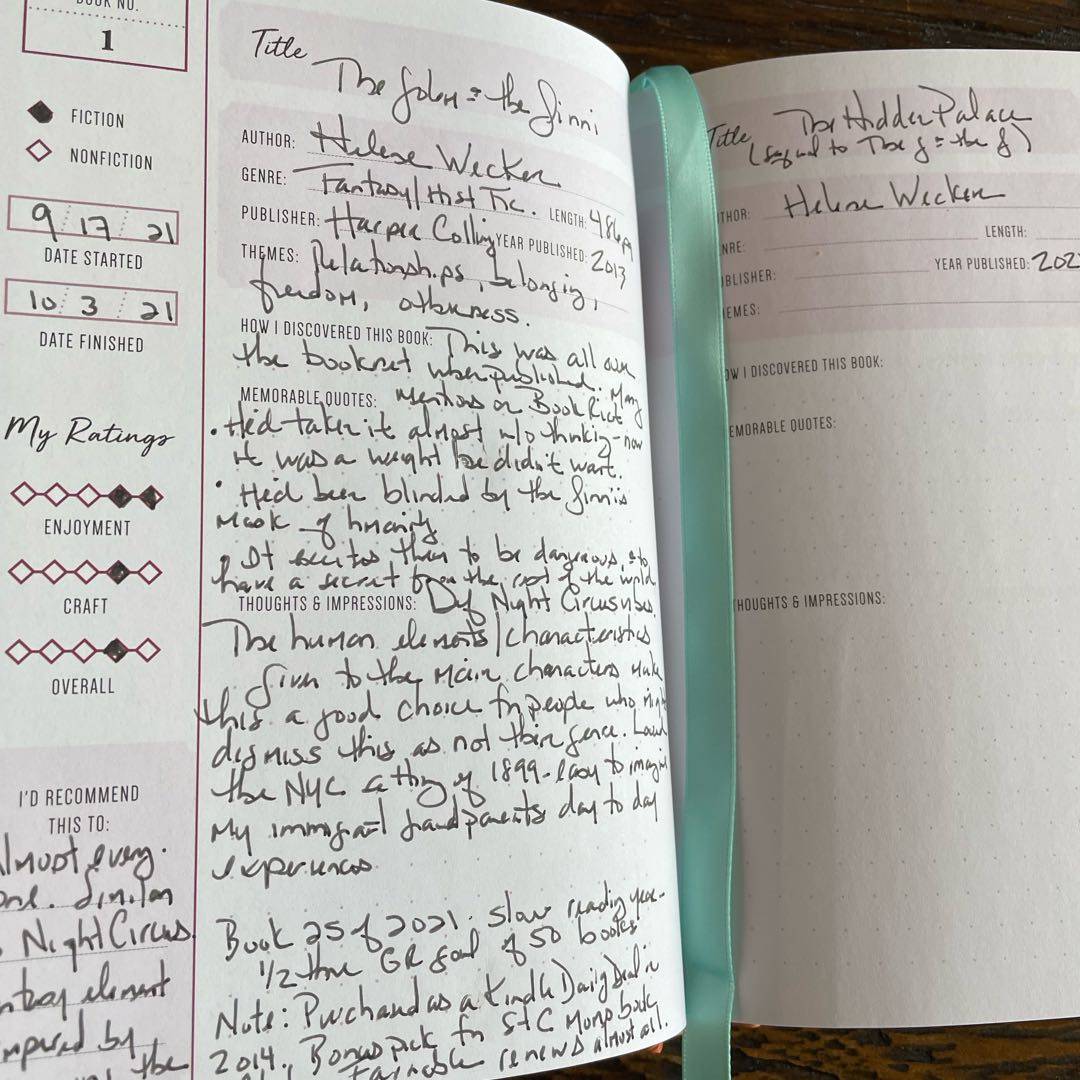 BOOK NO.
1
FICTION
NONFICTION
9 17 21
DATE STARTED
10 3 21
DATE FINISHED
My Ratings
ENJOYMENT
CRAFT
OVERALL
I'D RECOMMEND
THIS TO:
Almost every
one. Similar
Night Circus
element
by
the
Title
The Golem & the Jinni
AUTHOR: Helene Wecker
GENRE: Fantasy/Hist Fic. LENGTH: 486pg
PUBLISHER: Harper Collins YEAR PUBLISHED: 2013
THEMES: Relationships, belonging,
freedom, otherness.
HOW I DISCOVERED THIS BOOK: This was all over
the booknet when published. Many
MEMORABLE QUOTES: mentions on Book Riot
• He'd taken it almost w/o thinking - now
it was a weight he didn't want.
• He'd been blinded by the Jinni's
mask of humanity
• It excites them to be dangerous, to
have a secret from the rest of the world
THOUGHTS & IMPRESSIONS: Def Night Circus vibes
The human elements/characteristics
given to the main characters make
this a good choice for people who might
dismiss this as not their genre. Loved
the NYC setting of 1899 - easy to imagine
my immigrant grandparents day to day
experiences
Book 25 of 2021. slow reading year -
1/2 the GR goal of 50 books
Note: Purchased as a Kindle Daily Deal in
2014. Bonus pick for book
renews almost all.
Title The Hidden Palace
(sequel to The G & the J)
THOR: Helene Wecker
NRE: LENGTH:
BLISHER: YEAR PUBLISHED: 202
EMES:
OW I DISCOVERED THIS BOOK:
EMORABLE QUOTES:
HOUGHTS & IMPRESSIONS: